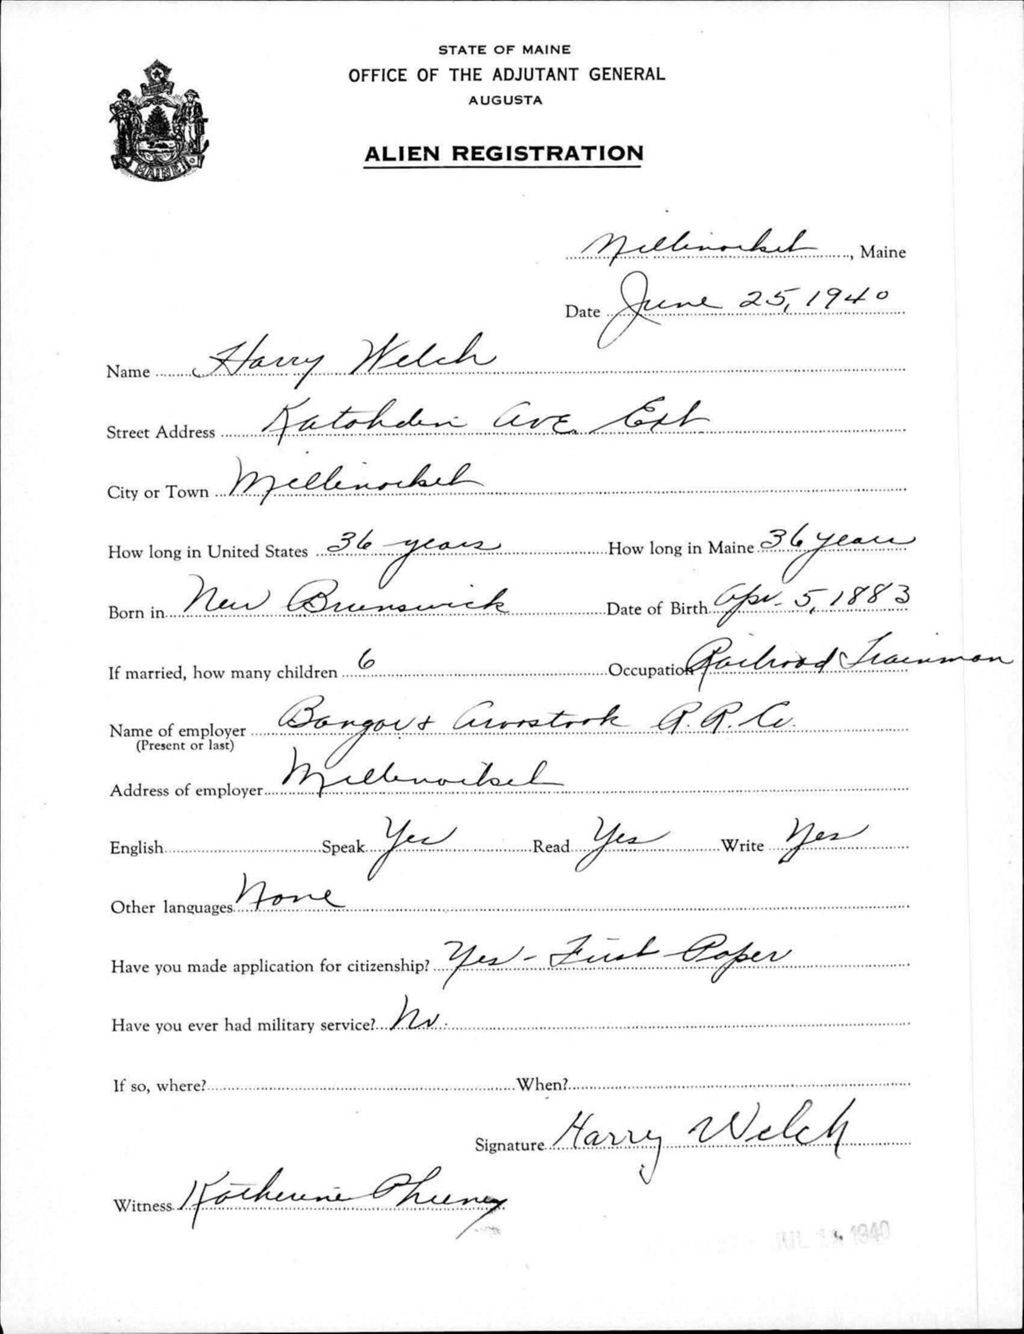 STATE OF MAINE
OFFICE OF THE ADJUTANT GENERAL
AUGUSTA
ALIEN REGISTRATION
MAINE
Millinocket, Maine
Date June 25, 1940
Name Harry Welch
Street Address Katahdin Ave. Ext
City or Town Millinocket
How long in United States 36 years How long in Maine 36 years
Born in New Brunswick Date of Birth Apr. 5, 1883
If married, how many children 6 Occupation Railroad Trainman
Name of employer Bangor & Aroostook R. R. Co.
(Present or last)
Address of employer Millinocket
English Speak Yes Read Yes Write Yes
Other languages None
Have you made application for citizenship? Yes - First Paper
Have you ever had military service? No.
If so, where? When?
Signature Harry Welch
Witness Katherine
1940